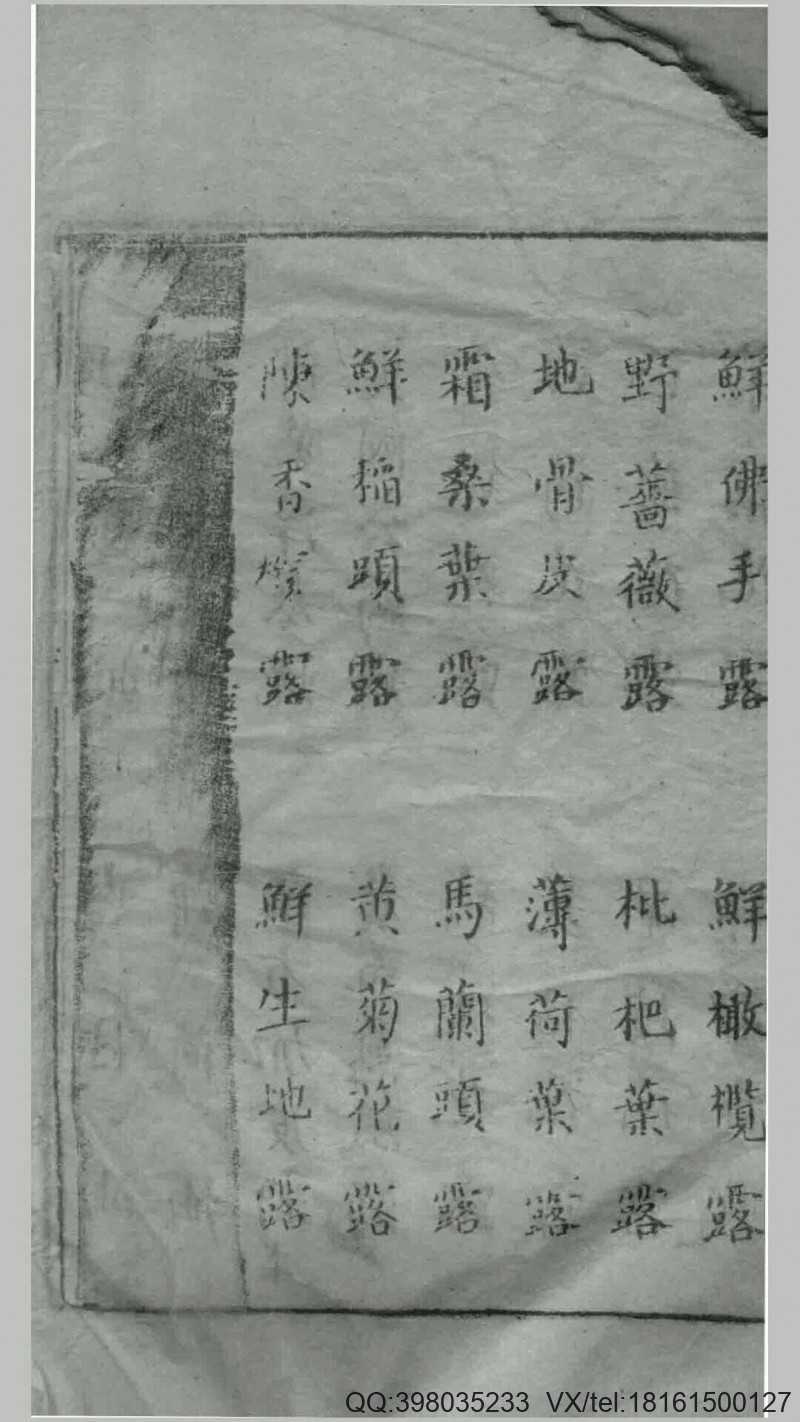 鮮佛手露 鮮橄欖露
野薔薇露 枇杷葉露
地骨皮露 薄荷葉露
霜桑葉露 馬蘭頭露
鮮稻頭露 黃菊花露
陳香櫞露 鮮生地露
QQ:398035233 VX/tel:18161500127